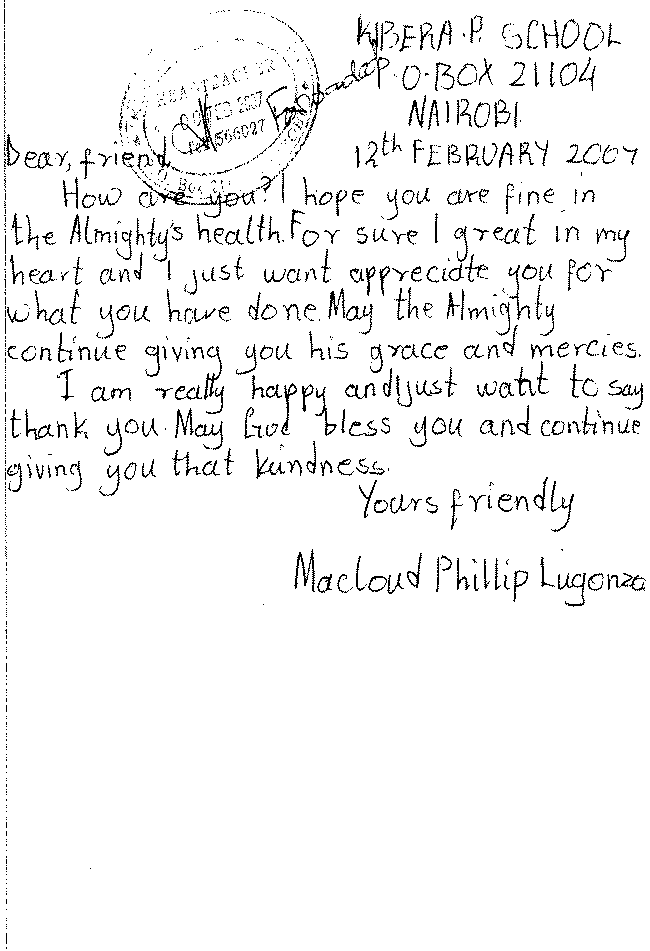 KIBERA P. SCHOOL
P.O.BOX 21104
NAIROBI
12th FEBRUARY 2007
HEADTEACHER
FEB 2007
566027
Dear, friend
How are you? I hope you are fine in
the Almighty's health. For sure I great in my
heart and I just want appreciate you for
what you have done. May the Almighty
continue giving you his grace and mercies.
I am really happy and just want to say
thank you. May God bless you and continue
giving you that kindness.
Yours friendly
Macloud Phillip Lugonzo